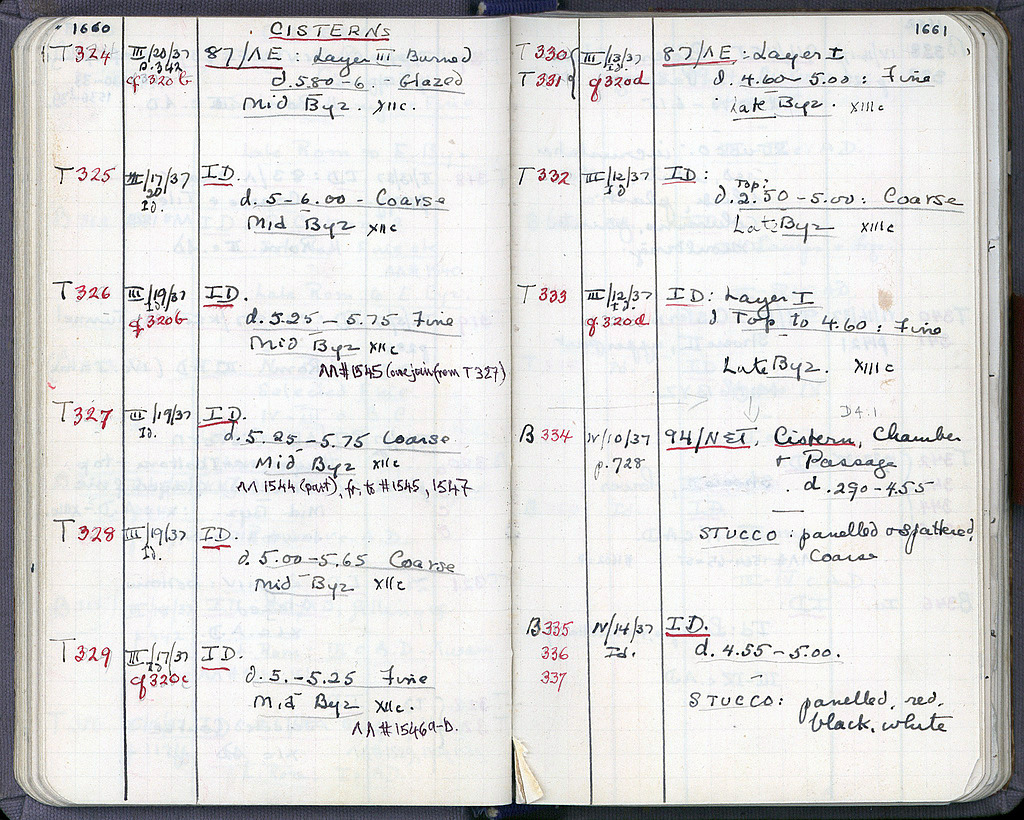 1660
CISTERNS
T 324 III/20/37 87/ΛE : Layer III Burned
p. 342
cf 320b d. 5.80 - 6. Glazed
Mid Byz. XIIc.
T 325 III/17/37 ID.
20
Id. d. 5 - 6.00 - Coarse
Mid Byz XIIc
T 326 III/19/37 ID.
Id.
cf 320b d. 5.25 - 5.75, Fine
Mid Byz XIIc
ΛΛ #1545 (one join from T 327)
T 327 III/19/37 ID.
Id. d. 5.25 - 5.75 Coarse
Mid Byz XIIc
ΛΛ 1544 (part), fr. to #1545, 1547
T 328 III/19/37 ID.
Id. d. 5.00 - 5.65 Coarse
Mid Byz XIIc
T 329 III/17/37 ID.
Id.
cf 320c d. 5. - 5.25 Fine
Mid Byz XIIc.
ΛΛ #1546a-D.
1661
T 330 III/13/37 87/ΛE : Layer I
Id.
T 331 cf 320d d. 4.60 - 5.00 : Fine
Late Byz. XIIIc
T 332 III/12/37 ID:
Id. Top:
d. 2.50 - 5.00: Coarse
Late Byz XIIIc
T 333 III/12/37 ID: Layer I
Id.
cf. 320d d Top to 4.60 : Fine
Late Byz. XIIIc
D4:1
B 334 IV/10/37 94/NET, Cistern, Chamber
p. 728 + Passage
d. 2.90 - 4.55
STUCCO : panelled + spattered,
Coarse
B 335 IV/14/37 ID.
336 Id. d. 4.55 - 5.00.
337
STUCCO: panelled, red,
black, white